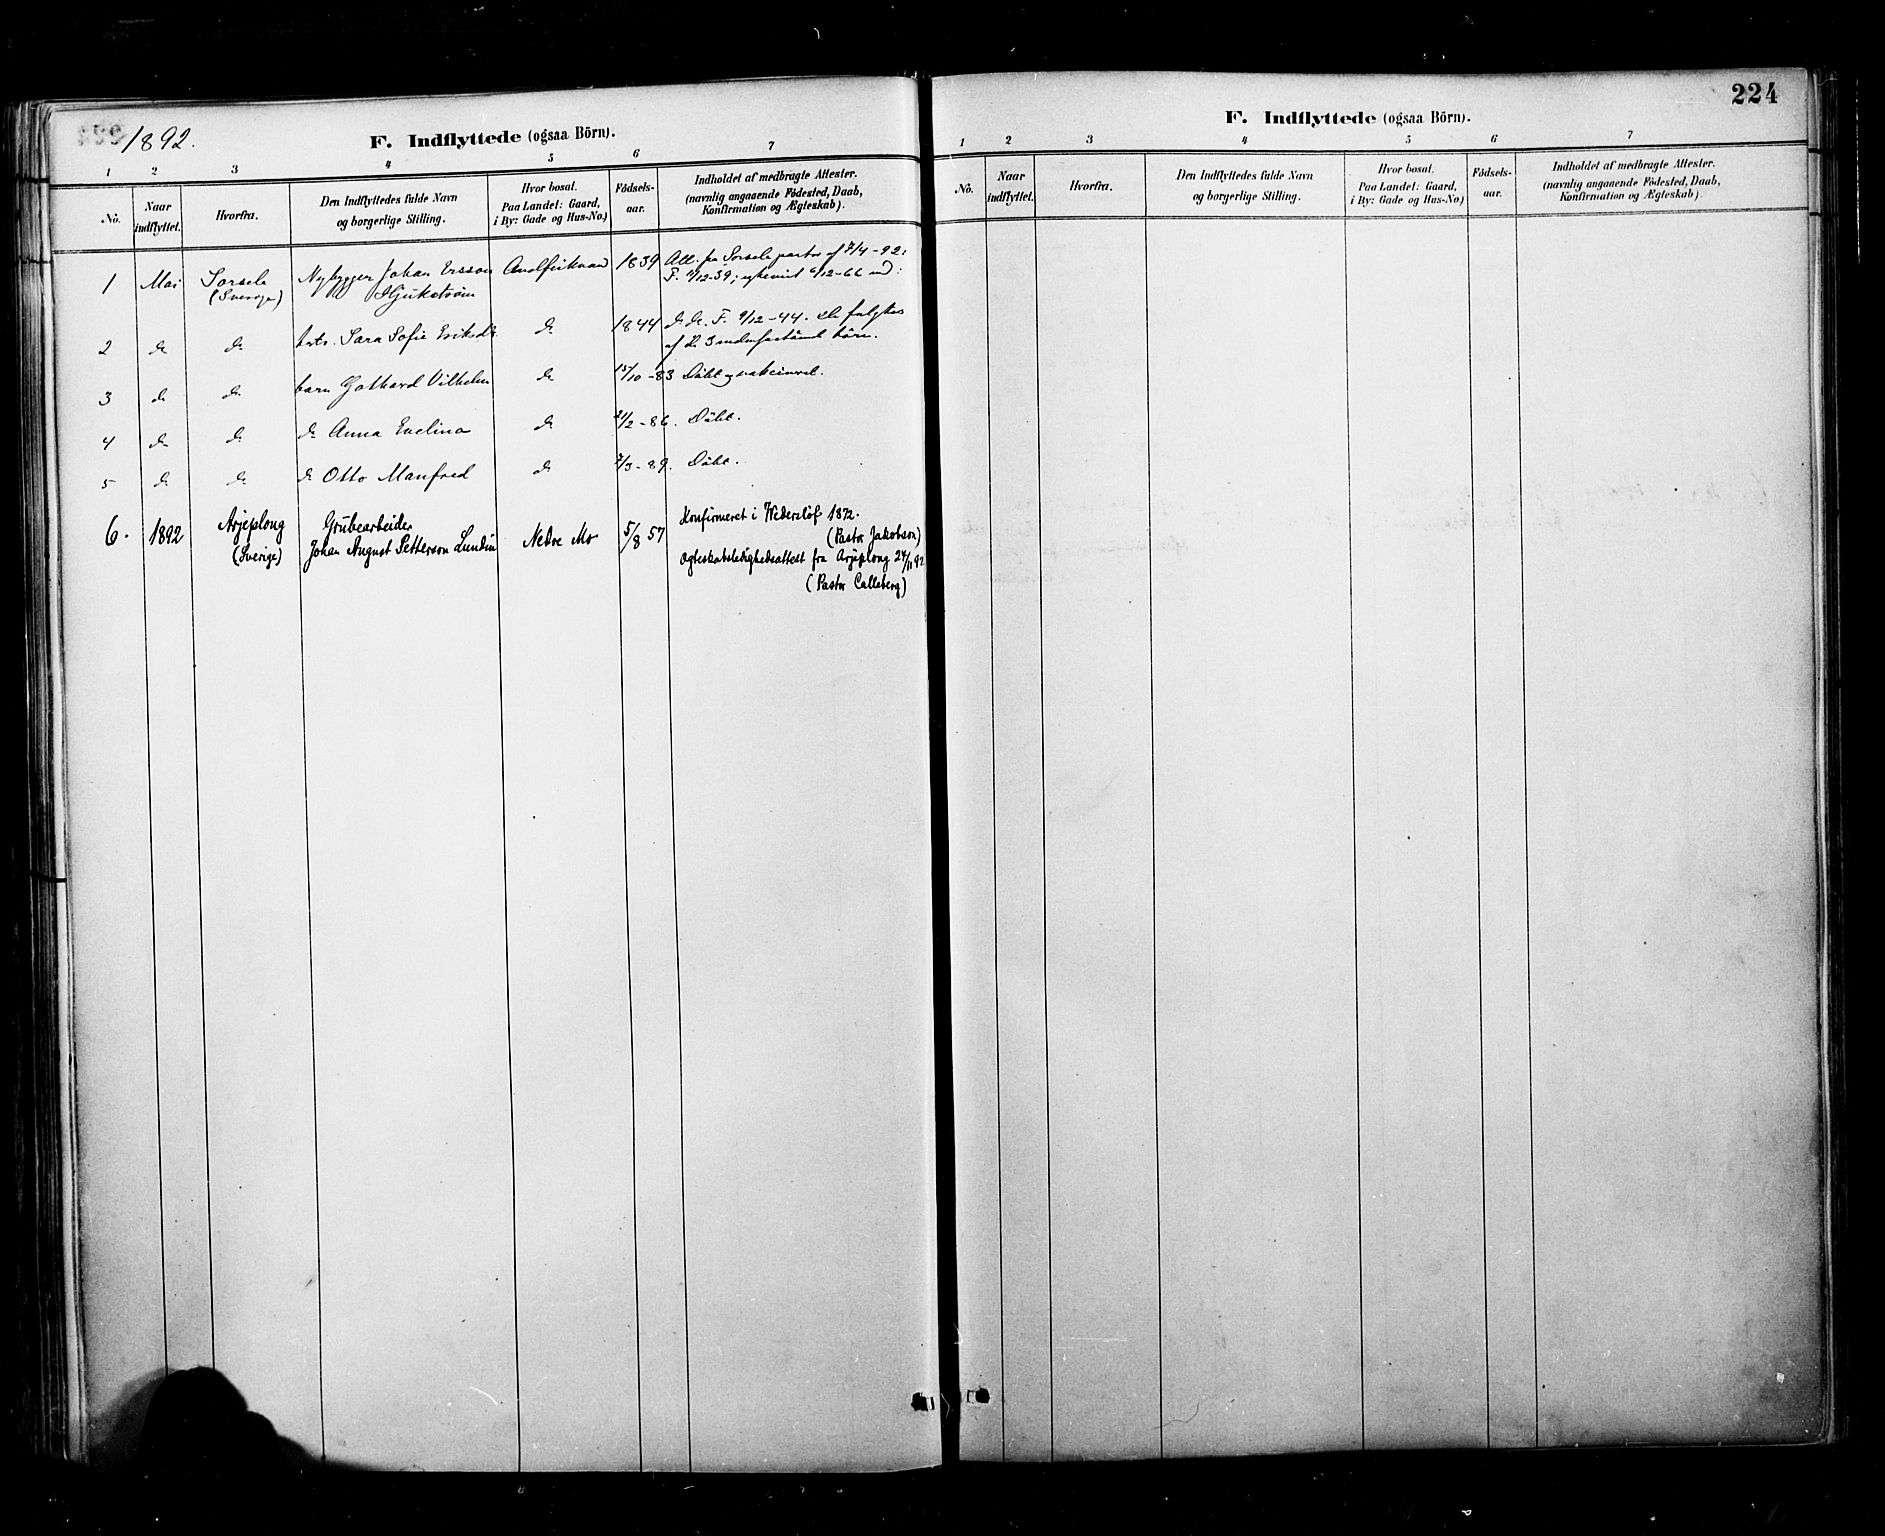 1892.
F. Indflyttede (ogsaa Börn).
1 2 3 4 5 6 7
No.
Naar
indflyttet.
Hvorfra.
Den Indflyttedes fulde Navn
og borgerlige Stilling.
Hvor bosat.
Paa Landet: Gaard,
i By: Gade og Hus-No.)
Födsels-
aar.
Indholdet af medbragte Attester.
(navnlig angaaende Födested, Daab,
Konfirmation og Ægteskab).
1 Mai Sorsele Nybygger Johan Ersson 1839 Att. fra Sorsele pastor af 7/4-92:
(Sverige) F. 11/12-39;
2 do do Sara Sofie Eriksdr. do 1844 do do. F. 9/12-44. De følges
af de 3 børn.
3 do do barn Gothard Vilhelm do 15/10-83 Døbt og vakcineret.
4 do do do Anna Evelina do 21/2-86. Døbt.
5 do do do Otto Manfred do 7/3-89. Døbt.
6. 1892 Arjeplong Grubearbeider 5/8 57 Konfirmeret i Wederslöf 1872.
(Sverige) Johan August Petterson Lundin Nedre Mo (Pastor Jakobson)
Ogteskabsledighedsattest fra Arjeplong 24/11 92
(Pastor Calleberg)
224
F. Indflyttede (ogsaa Börn).
1 2 3 4 5 6 7
No.
Naar
indflyttet.
Hvorfra.
Den Indflyttedes fulde Navn
og borgerlige Stilling.
Hvor bosat.
Paa Landet: Gaard,
i By: Gade og Hus-No.)
Födsels-
aar.
Indholdet af medbragte Attester.
(navnlig angaaende Födested, Daab,
Konfirmation og Ægteskab).